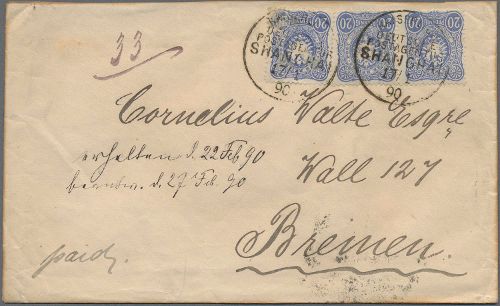 33
20 20 20
KAISERL.
DEUTSCHE
POSTAGENTUR
SHANGHAI
17/1
90
DEUTSCHE
POSTAGENTUR
SHANGHAI
17/1
90
Cornelius Walte Esqre
erhalten d. 22 Feb 90
beantw. d. 27 Feb. 90
Wall 127
Bremen.
paid